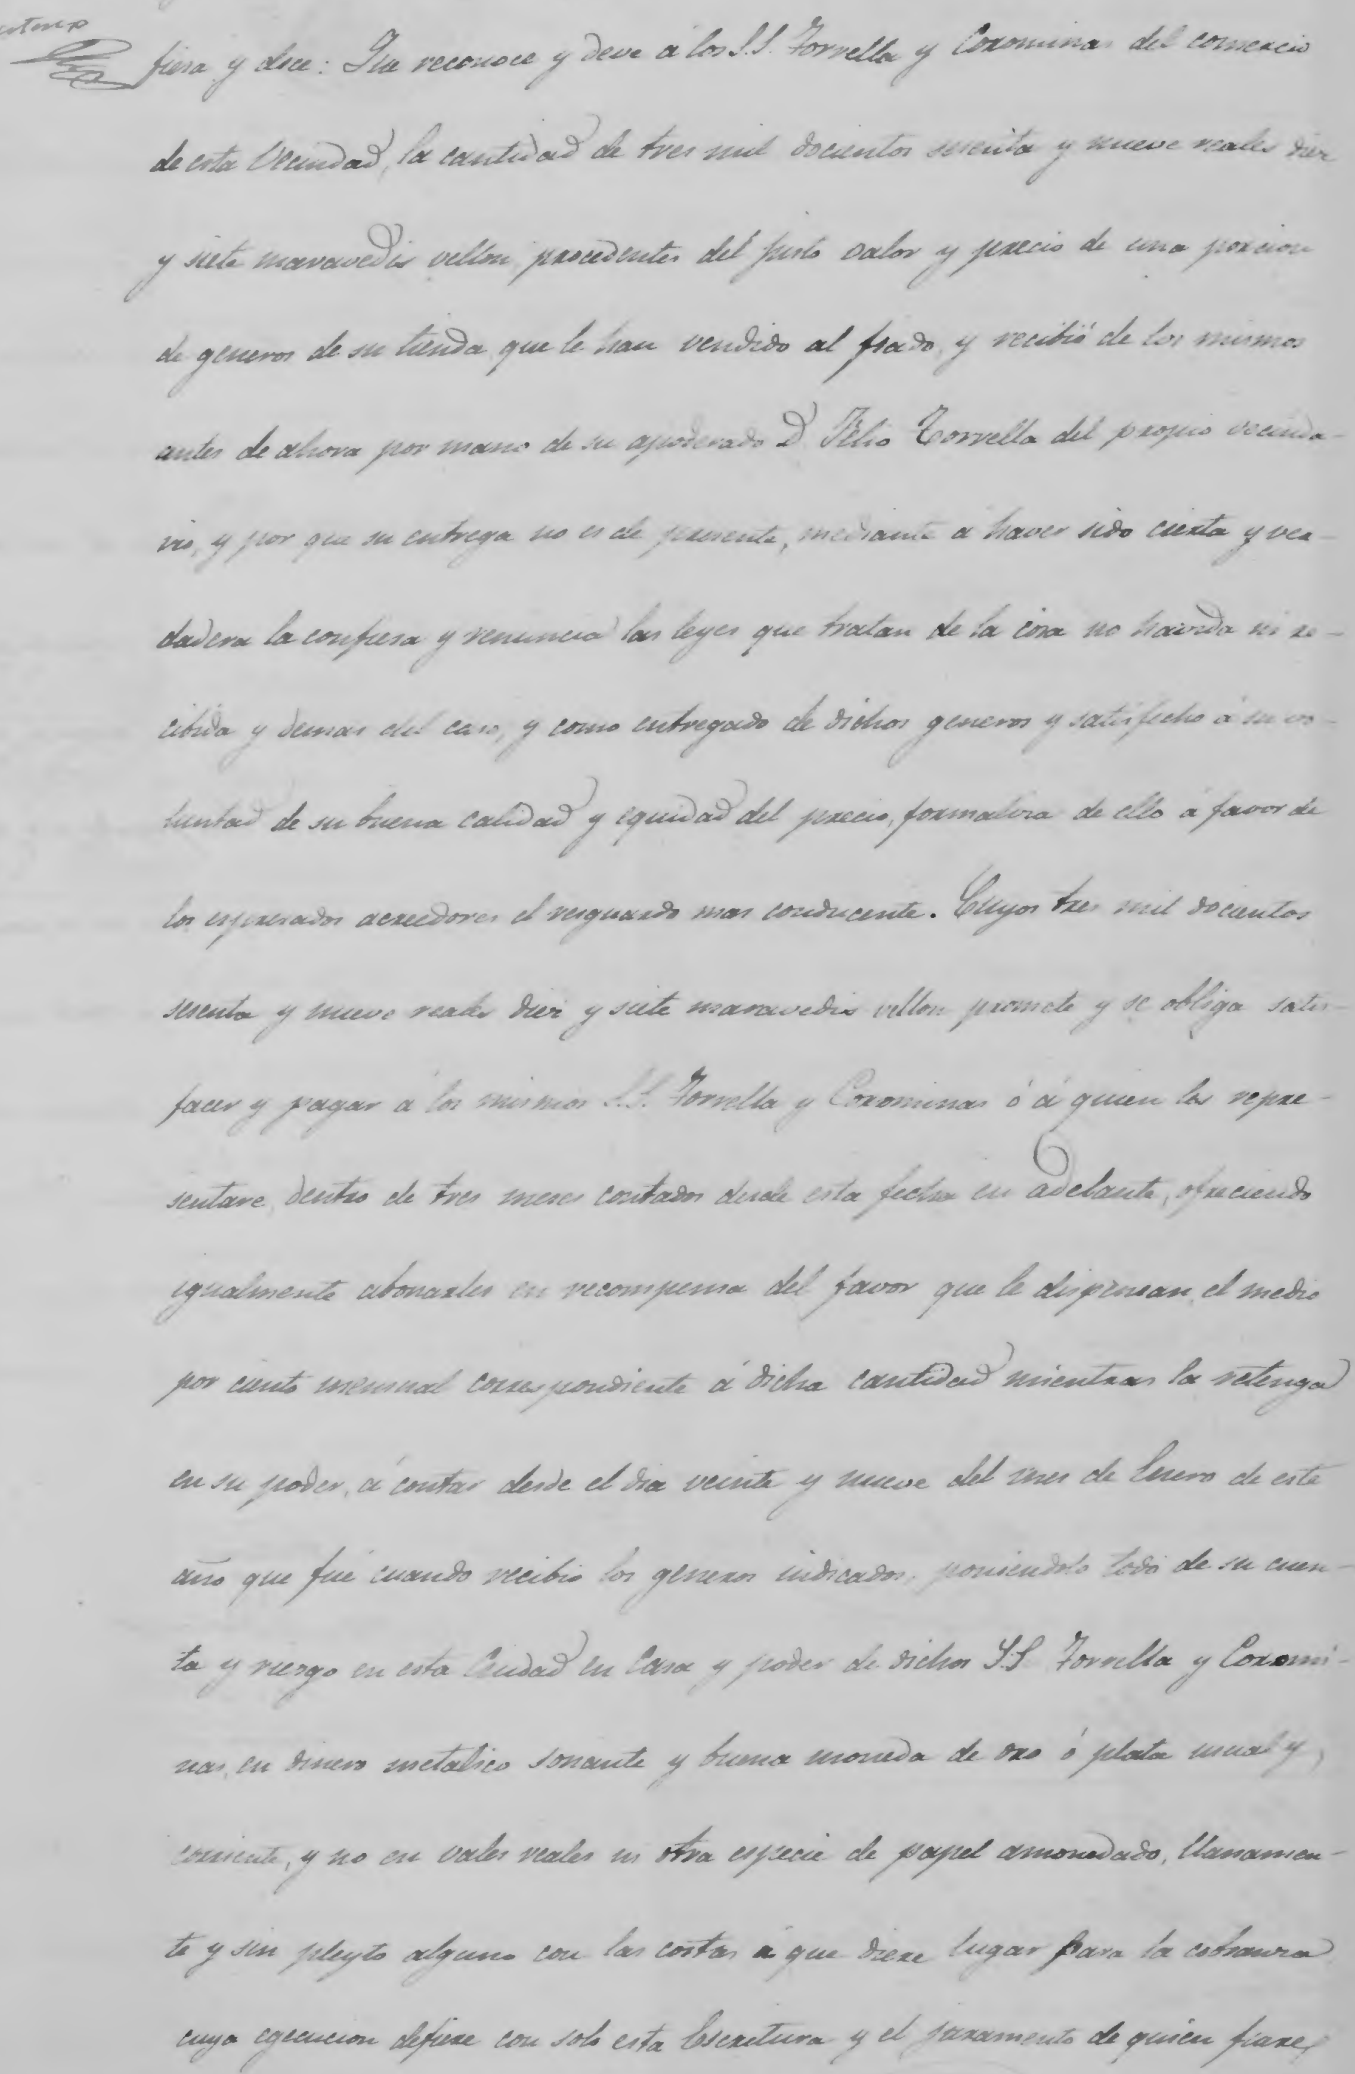 fiesa y dice: Que reconoce y deve á los S.S. Torrella y Corominas del comercio
de esta Vecindad, la cantidad de tres mil docientos sesenta y nueve reales diez
y siete maravedis vellon, procedentes del justo valor y precio de una porcion
de generos de su tienda, que le han vendido al fiado, y recibió de los mismos
antes de ahora por mano de su apoderado D. Felio Torrella del propio vecinda-
rio, y por que su entrega no es de presente, mediante a haver sido cierta y ver-
dadera la confiesa y renuncia las leyes que tratan de la cosa no havida ni re-
cibida y demas del caso, y como entregado de dichos generos y satisfecho á su vo-
luntad de su buena calidad y equidad del precio, formaliza de ello á favor de
los espresados acreedores el resguardo mas conducente. Cuyos tres mil docientos
sesenta y nueve reales diez y siete maravedis vellon promete y se obliga satis-
facer y pagar á los mismos S.S. Torrella y Corominas ó á quien les repre-
sentare, dentro de tres meses contados desde esta fecha en adelante, ofreciendo
igualmente abonarles en recompensa del favor que le dispensan, el medio
por ciento mensual correspondiente á dicha cantidad mientras la retenga
en su poder, á contar desde el dia veinte y nueve del mes de Enero de este
año que fué cuando recibió los generos indicados, poniendolo todo de su cuen-
ta y riesgo en esta Ciudad en Casa y poder de dichos S.S Torrella y Coromi-
nas, en dinero metalico sonante y buena moneda de oro ó plata usual y
corriente, y no en vales reales ni otra especie de papel amonedado, llanamen-
te y sin pleyto alguno con las costas á que diere lugar para la cobranza
cuya egecucion defiere con solo esta Escritura y el juramento de quien fuere